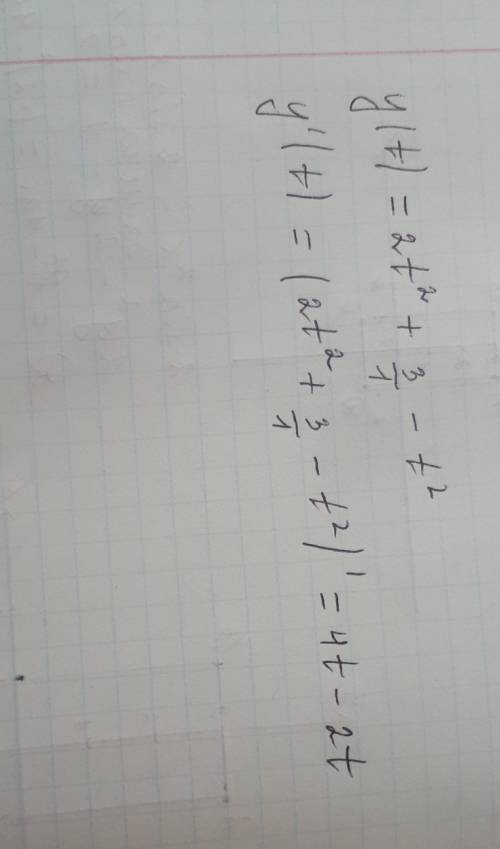 y(t) = 2t² + 3/1 - t²
y'(t) = (2t² + 3/1 - t²)' = 4t - 2t